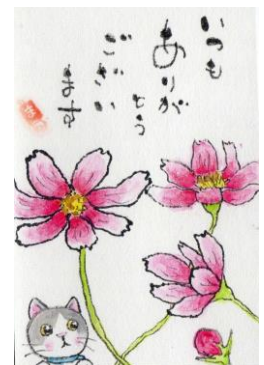 いつも
ありが
とう
ござい
ます